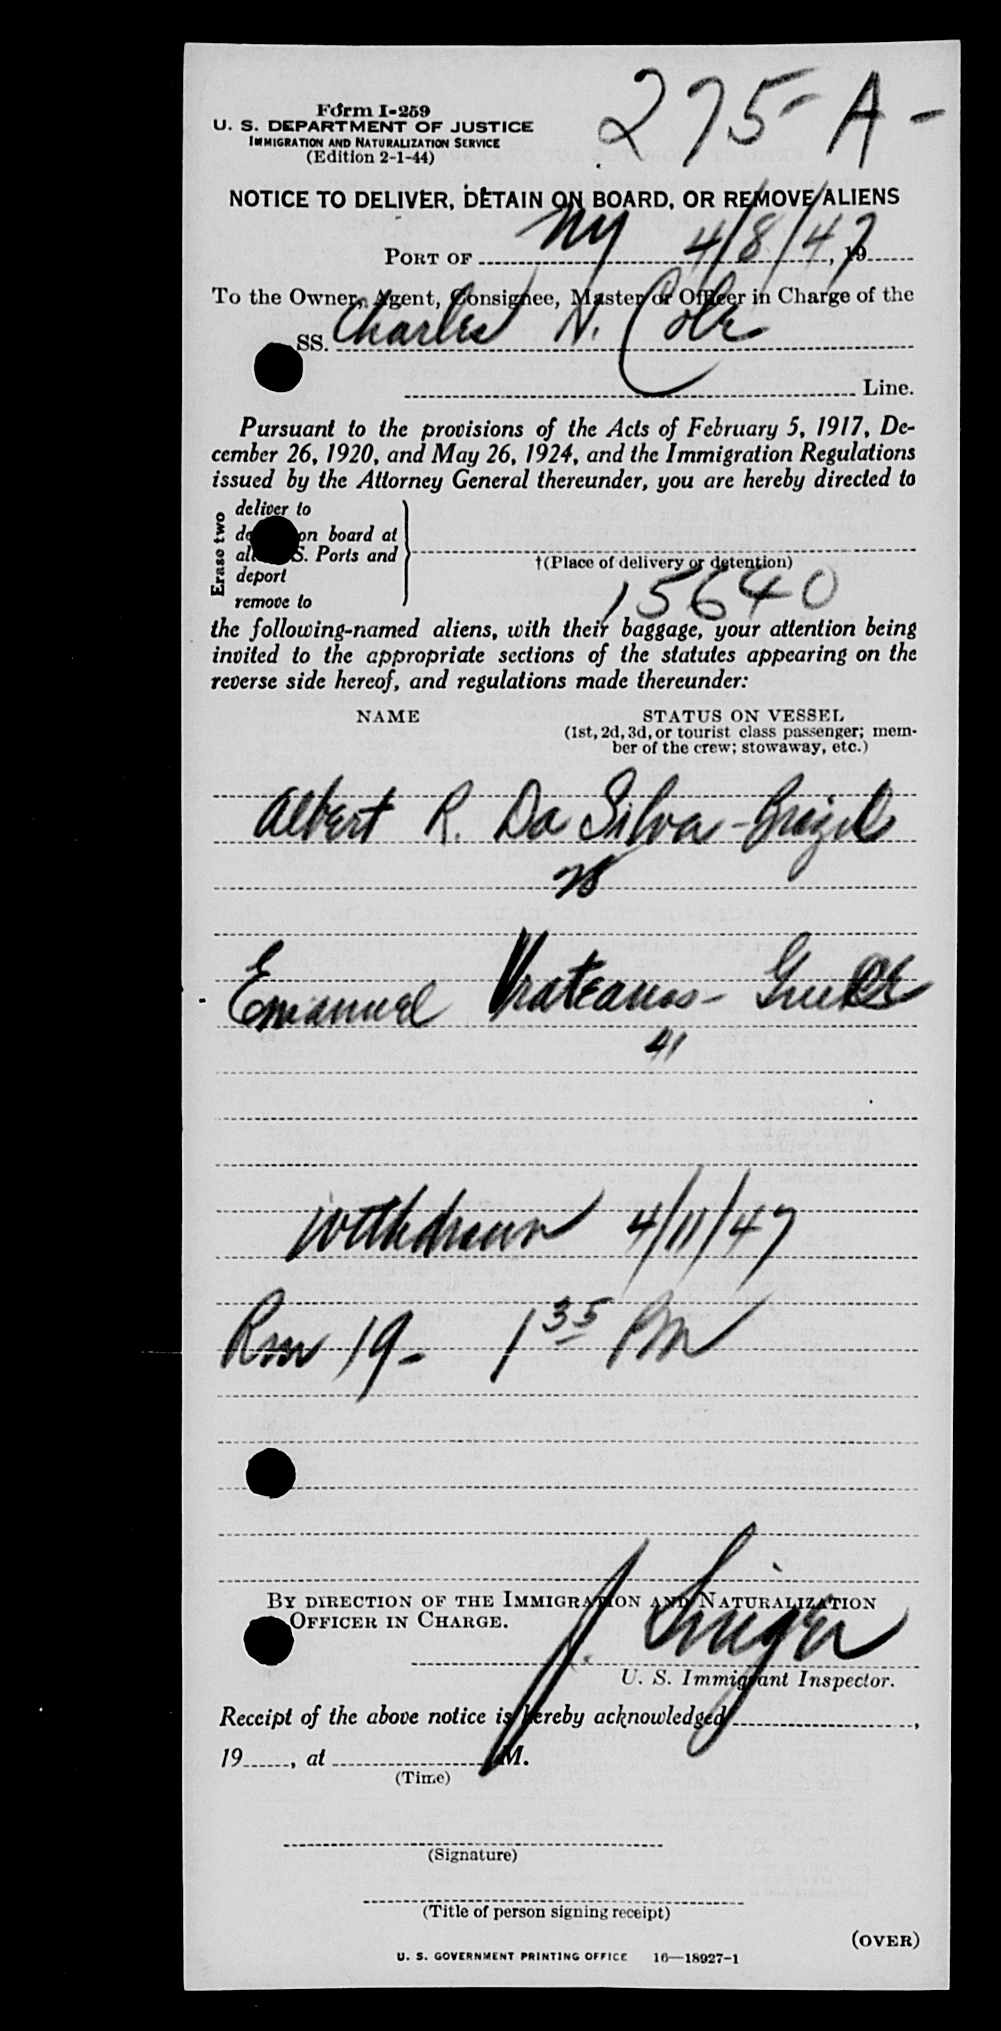 275-A-
Form I-259
U. S. DEPARTMENT OF JUSTICE
IMMIGRATION AND NATURALIZATION SERVICE
(Edition 2-1-44)
NOTICE TO DELIVER, DETAIN ON BOARD, OR REMOVE ALIENS
PORT OF NY 4/8/47, 19
To the Owner, Agent, Consignee, Master or Officer in Charge of the
SS. Charles N. Cole
Line.
Pursuant to the provisions of the Acts of February 5, 1917, De-
cember 26, 1920, and May 26, 1924, and the Immigration Regulations
issued by the Attorney General thereunder, you are hereby directed to
Erase two
deliver to
on board at
S. Ports and
deport
remove to
†(Place of delivery or detention)
15640
the following-named aliens, with their baggage, your attention being
invited to the appropriate sections of the statutes appearing on the
reverse side hereof, and regulations made thereunder:
NAME STATUS ON VESSEL
(1st, 2d, 3d, or tourist class passenger; mem-
ber of the crew; stowaway, etc.)
Albert R. Da Silva - Brazil
28
Emanuel Vrateanos - Greek
41
Withdrawn 4/11/47
Rm 19 - 1 35 PM
BY DIRECTION OF THE IMMIGRATION AND NATURALIZATION
OFFICER IN CHARGE.
J. Singer
U. S. Immigrant Inspector.
Receipt of the above notice is hereby acknowledged,
19, at M.
(Time)
(Signature)
(Title of person signing receipt)
(OVER)
U. S. GOVERNMENT PRINTING OFFICE 16—18927-1